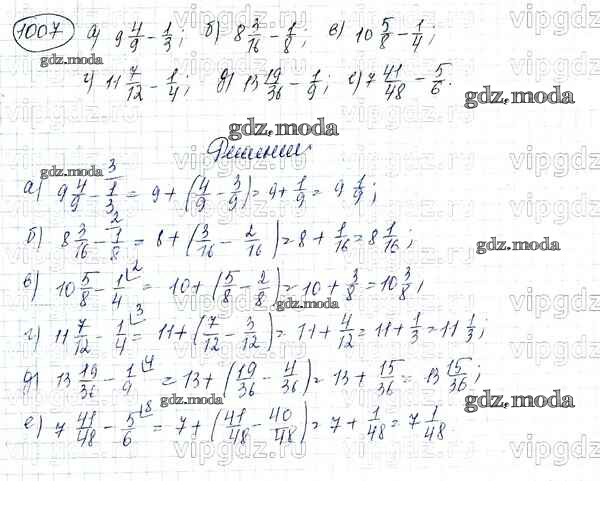 1007 а) 9 4/9 - 1/3; б) 8 3/16 - 1/8; в) 10 5/8 - 1/4;
г) 11 7/12 - 1/4; д) 13 19/36 - 1/9; е) 7 41/48 - 5/6.
Решение
а) 9 4/9 - 1/3 ³ = 9 + (4/9 - 3/9) = 9 + 1/9 = 9 1/9;
б) 8 3/16 - 1/8 ² = 8 + (3/16 - 2/16) = 8 + 1/16 = 8 1/16;
в) 10 5/8 - 1/4 ² = 10 + (5/8 - 2/8) = 10 + 3/8 = 10 3/8;
г) 11 7/12 - 1/4 ³ = 11 + (7/12 - 3/12) = 11 + 4/12 = 11 + 1/3 = 11 1/3;
д) 13 19/36 - 1/9 ⁴ = 13 + (19/36 - 4/36) = 13 + 15/36 = 13 15/36;
е) 7 41/48 - 5/6 ⁸ = 7 + (41/48 - 40/48) = 7 + 1/48 = 7 1/48.
gdz.moda
vipgdz.ru